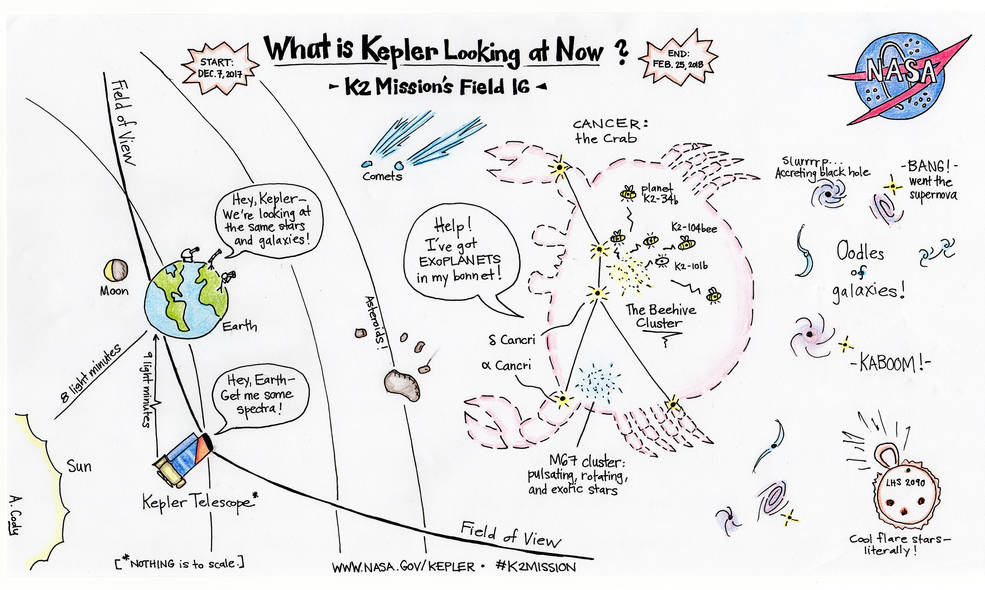 What is Kepler Looking at Now?
- K2 Mission's Field 16 -
START:
DEC. 7, 2017
END:
FEB. 25, 2018
NASA
Field of View
Hey, Kepler—
We're looking at
the same stars
and galaxies!
Moon
Earth
8 light minutes
9 light minutes
Hey, Earth—
Get me some
spectra!
Sun
Kepler Telescope*
A. Cody
[*NOTHING is to scale.]
Asteroids!
Field of View
WWW.NASA.GOV/KEPLER • #K2MISSION
Comets
CANCER:
the Crab
Help!
I've got
EXOPLANETS
in my bonnet!
planet
K2-34b
K2-104bee
K2-101b
The Beehive
Cluster
δ Cancri
α Cancri
M67 cluster:
pulsating, rotating,
and exotic stars
Slurrrrp...
Accreting black hole
-BANG!-
went the
supernova
Oodles
of
galaxies!
-KABOOM!-
LHS 2090
Cool flare stars—
literally!